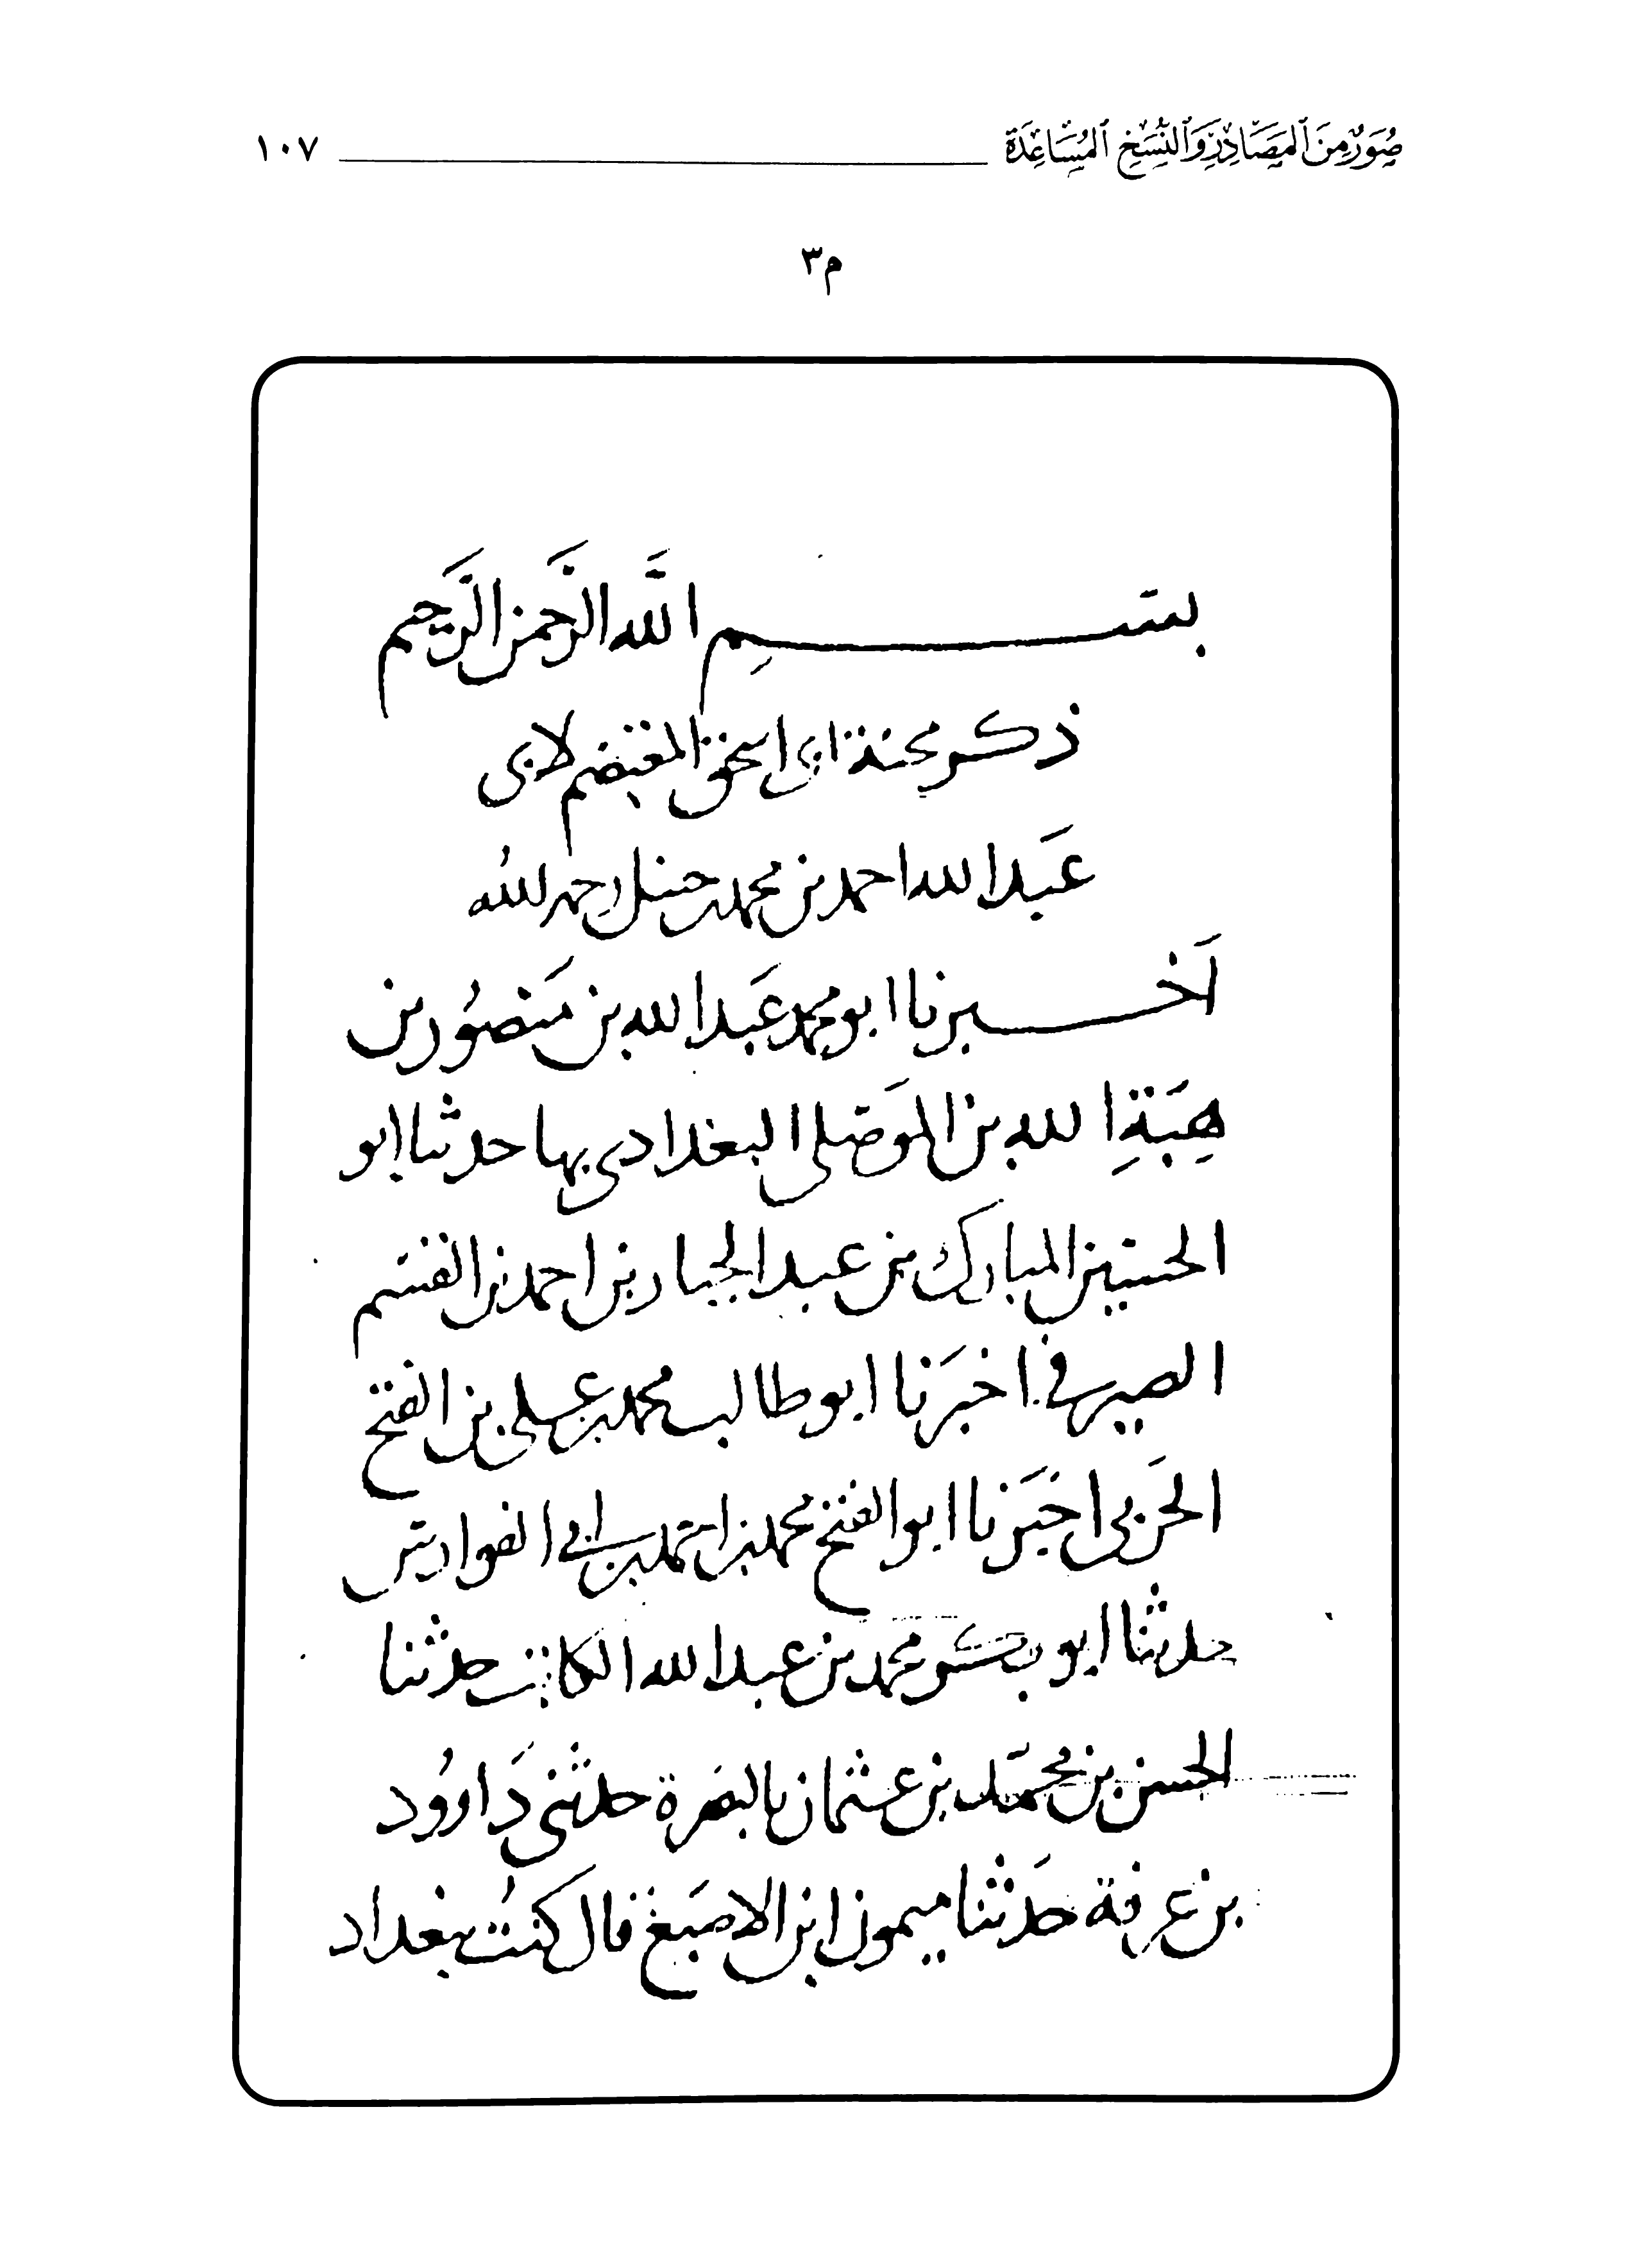 صُوَرٌ مِنَ ٱلْمَصَادِرِ وَٱلنُّسَخِ ٱلْمُسَاعِدَةِ ١٠٧
م٣
بسم اللَّه الرَّحمن الرَّحيم
ذكر محنة ابي اسحق المعتصم لابي
عَبد الله احمد بن محمد بن حنبل رحمه الله
أخبرنا ابو محمد عَبد الله بن مَنصُور بن
هِبَةِ الله بن الموَصلي البغدادي بها حدثنا ابو
الحسين المبارك بن عبد الجبار بن احمد بن القسم
الصيرفي اخبرَنا ابو طالب محمد بن علي بن الفتح
الحَربي اخبَرنا ابو الفتح محمد بن احمد بن ابي الفوارس
حدثنا ابو بكر محمد بن عبد الله الكاتب حدثنا
الحسن بن محمَّد بن عثمان بالبصرة حدثني دَاوُود
بن عرفة حدَثنا ميمون ابن الاصبَغ قال كنتُ ببغداد